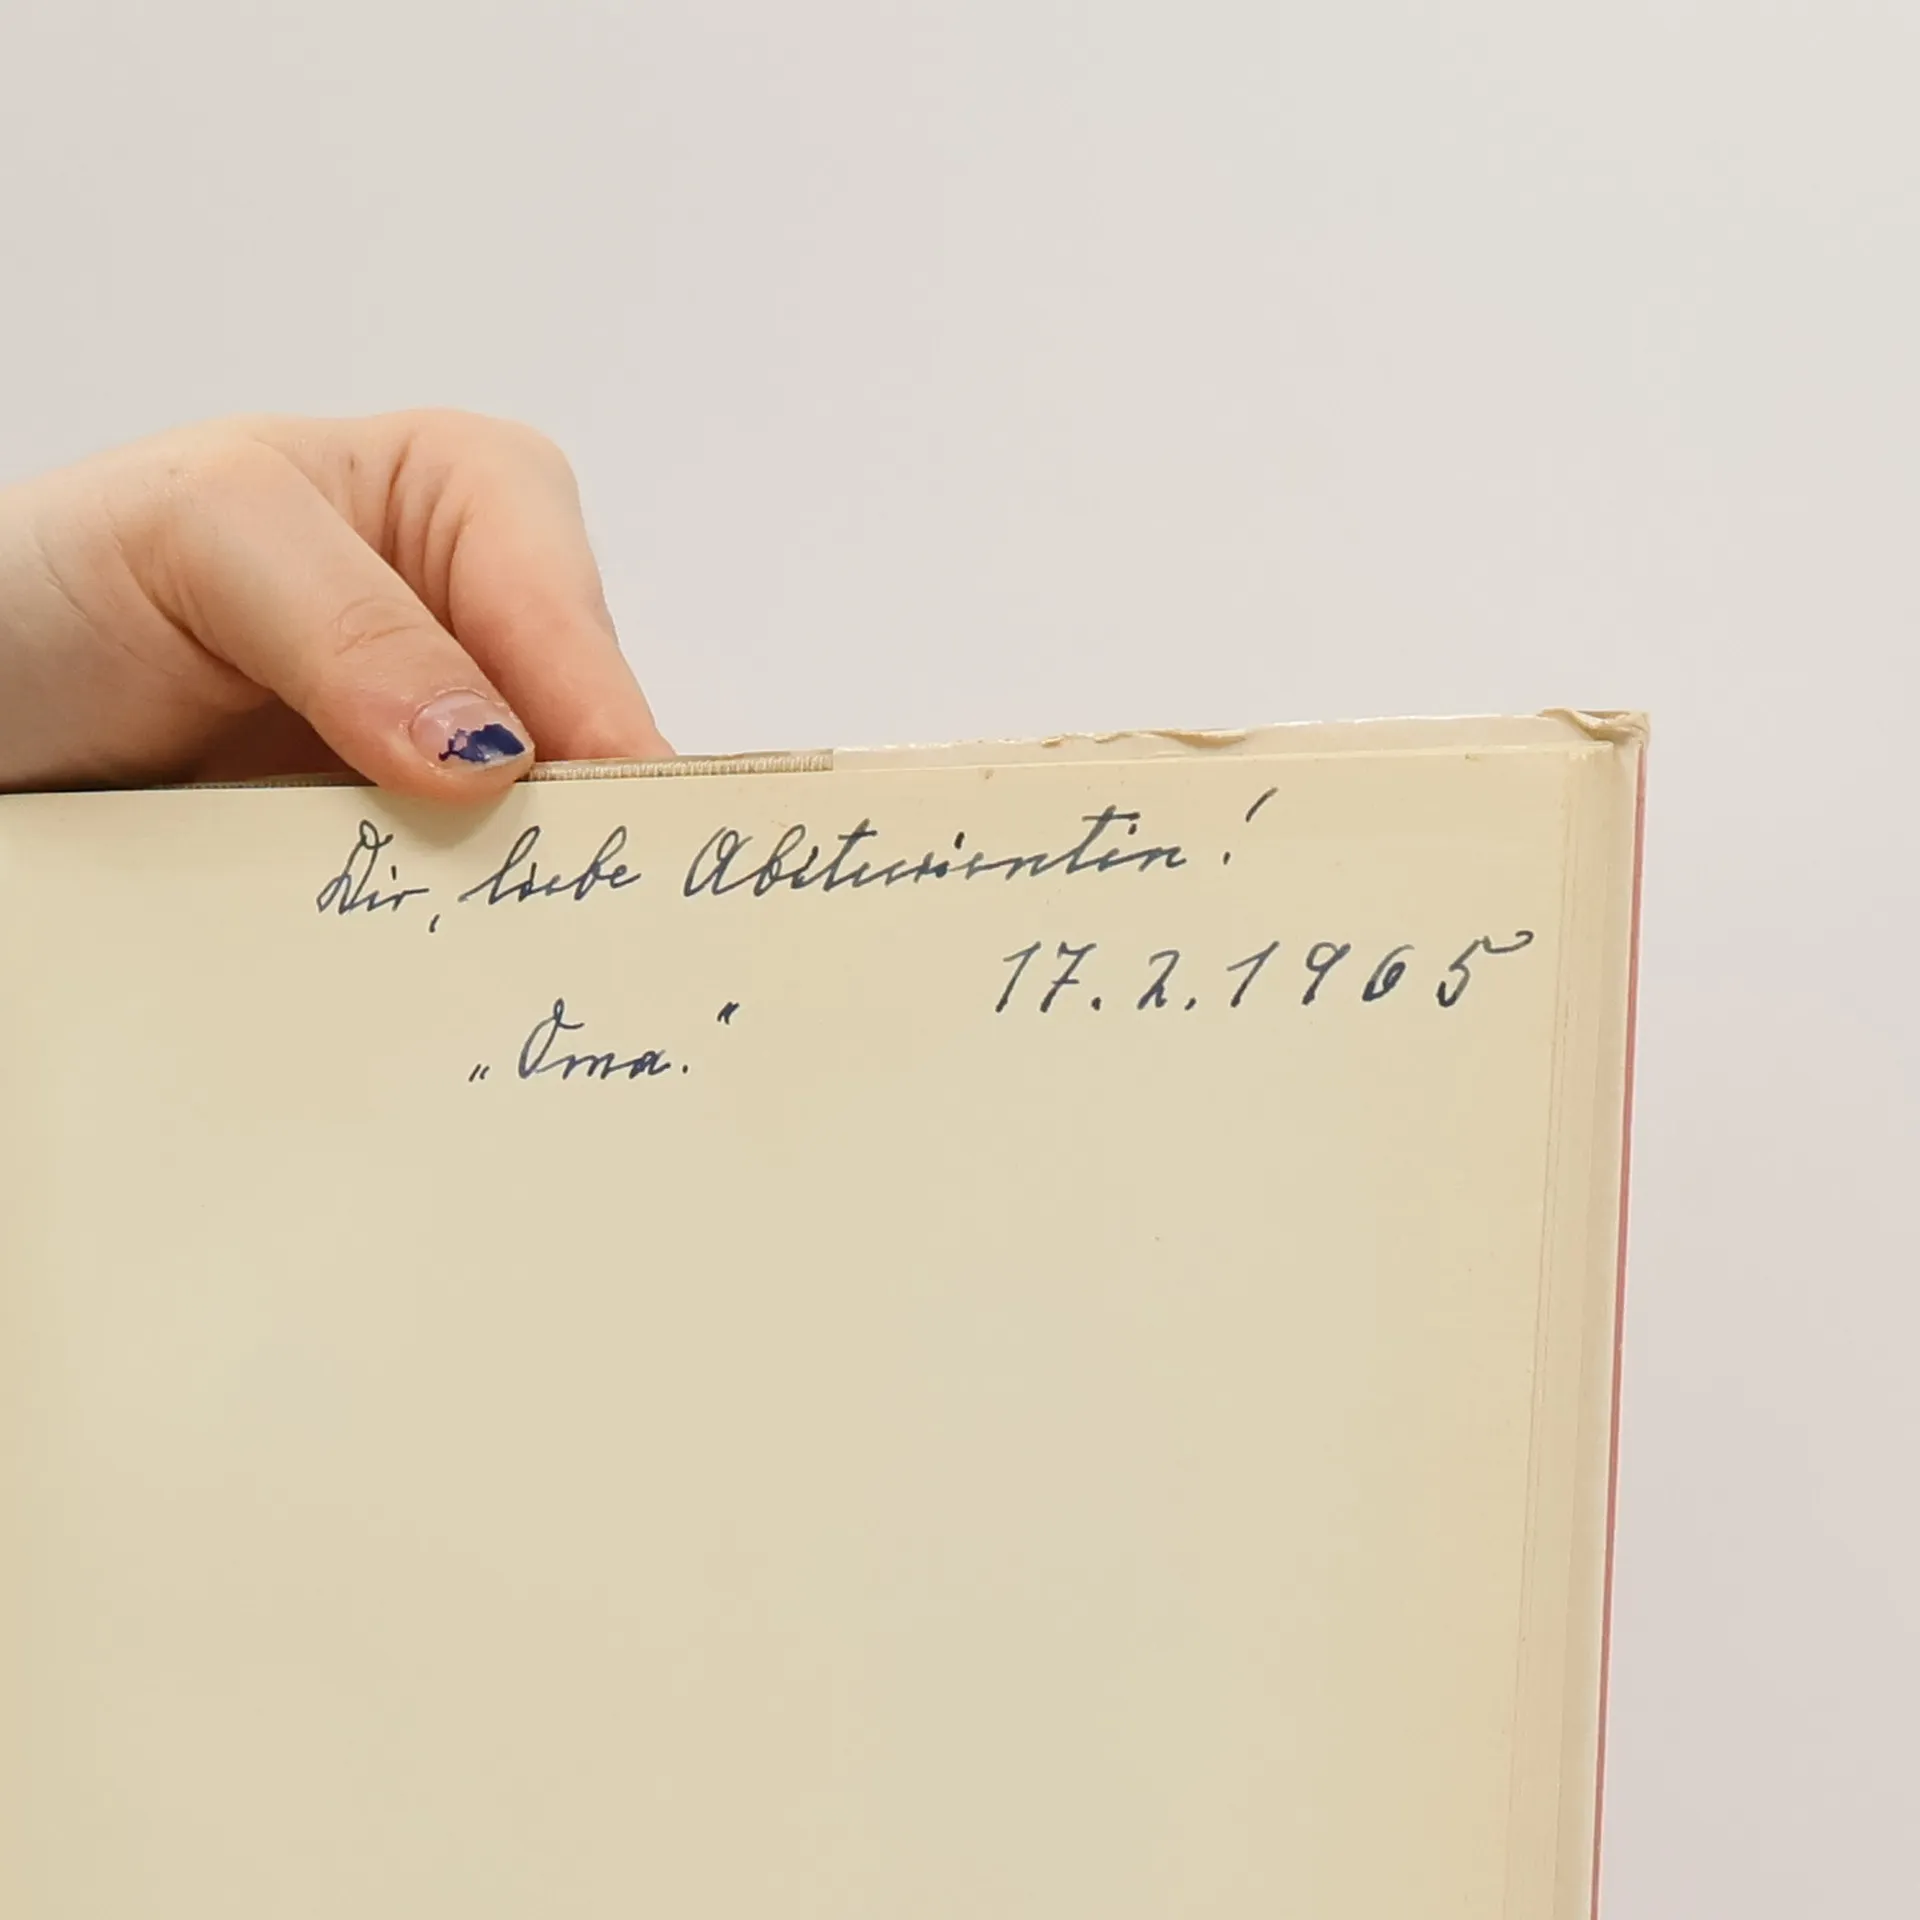 Dir, liebe Abiturientin!
17.2.1965
„Oma.“